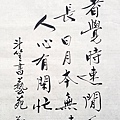 者覺時速閒
長日月本無
人心有閒忙
斗笠書藝苑